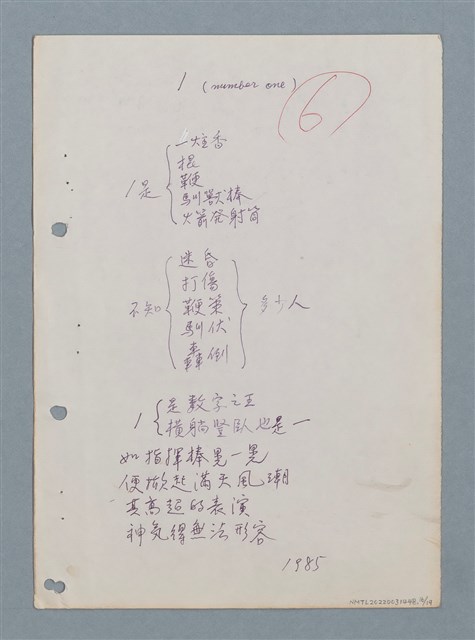 1 (number one)
6
1是
一炷香
棍
鞭
馴獸棒
火箭発射筒
不知
迷昏
打傷
鞭策
馴伏
轟倒
多少人
1
是数字之王
橫躺豎臥也是一
如指揮棒晃一晃
便掀起滿天風潮
其高超的表演
神気得無法形容
1985